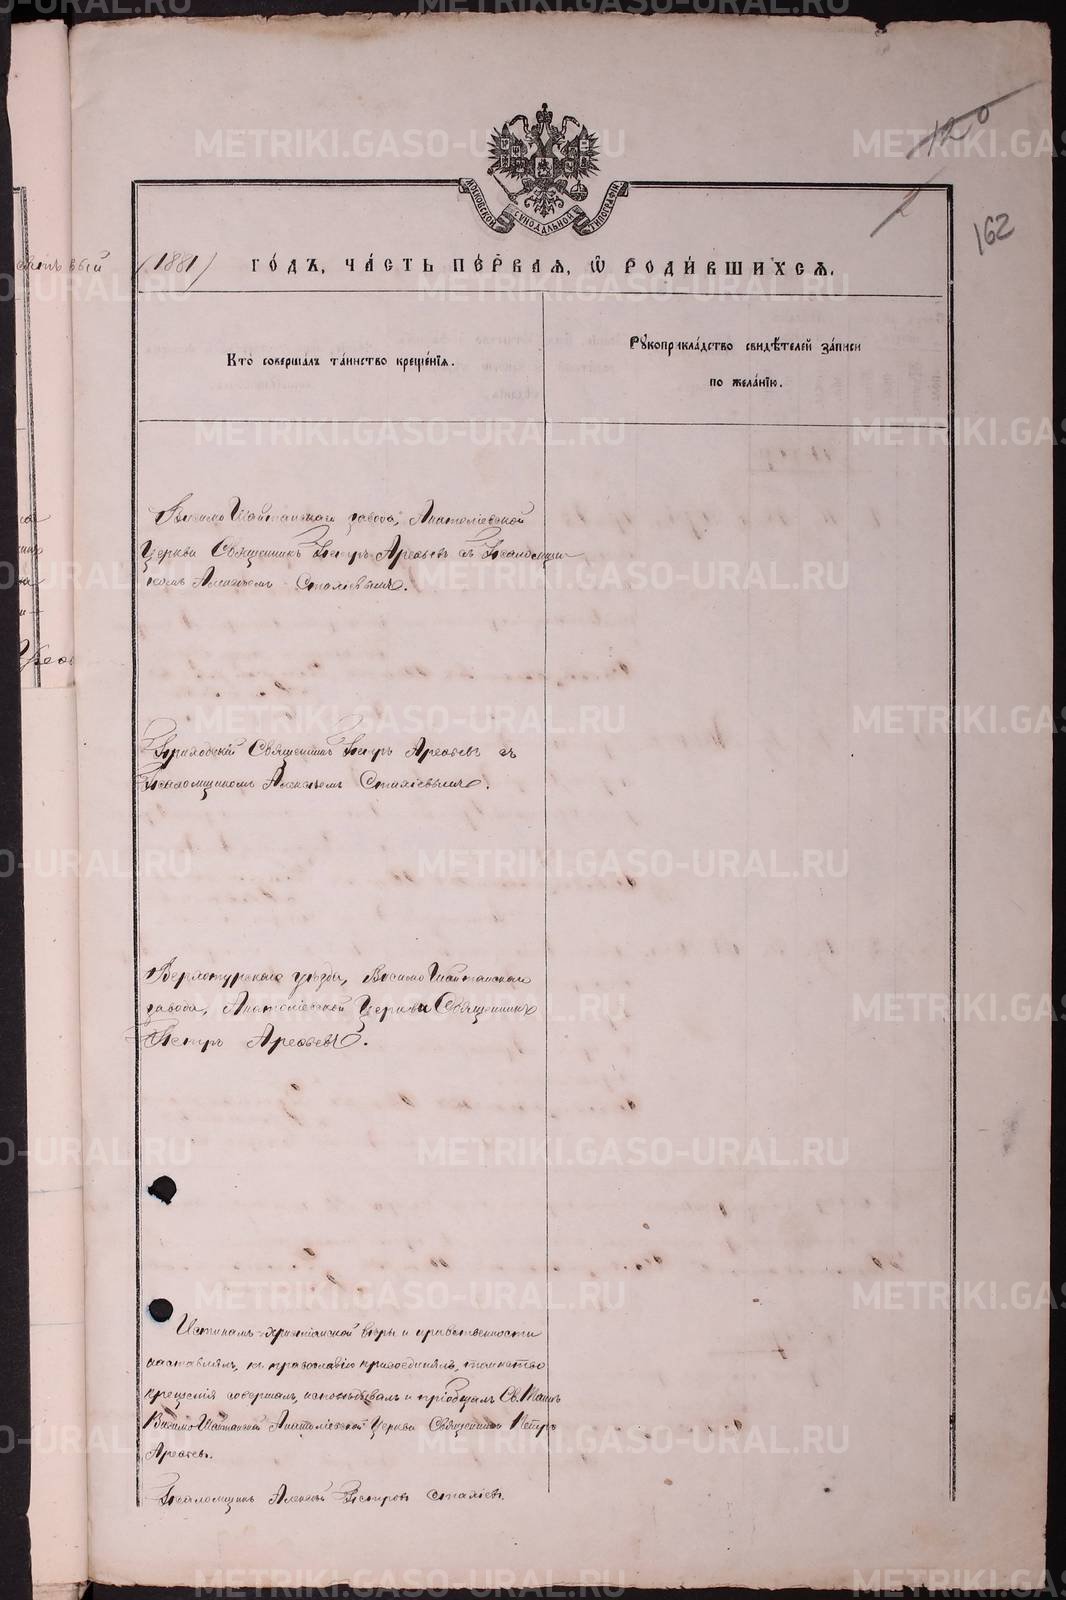 120
162
МОСКОВСКОЙ СѴНОДАЛЬНОЙ ТИПОГРАФІИ
(1881) ГОДЪ, ЧАСТЬ ПЕРВАЯ, Ѡ РОДИВШИХСЯ.
Кто совершалъ таинство крещенія.
Рукоприкладство свидѣтелей записи
по желанію.
Висимо Шайтанскаго завода, Анатоліевской
Церкви Священникъ Петръ Арефьевъ съ Псаломщи-
комъ Алексѣемъ Стахіевымъ.
Приходскій Священникъ Петръ Арефьевъ съ
Псаломщикомъ Алексѣемъ Стахіевымъ.
Верхотурскаго уѣзда, Висимо Шайтанскаго
завода, Анатоліевской Церкви Священникъ
Петръ Арефьевъ.
Истинамъ христіанской вѣры и нравственности
наставлялъ, къ православію присоединялъ, таинство
крещенія совершалъ, исповѣдывалъ и пріобщалъ Св. Таинъ
Висимо Шайтанской Анатоліевской Церкви Священникъ Петръ
Арефьевъ.
Псаломщикъ Алексѣй Петровъ Стахіевъ.
METRIKI.GASO-URAL.RU